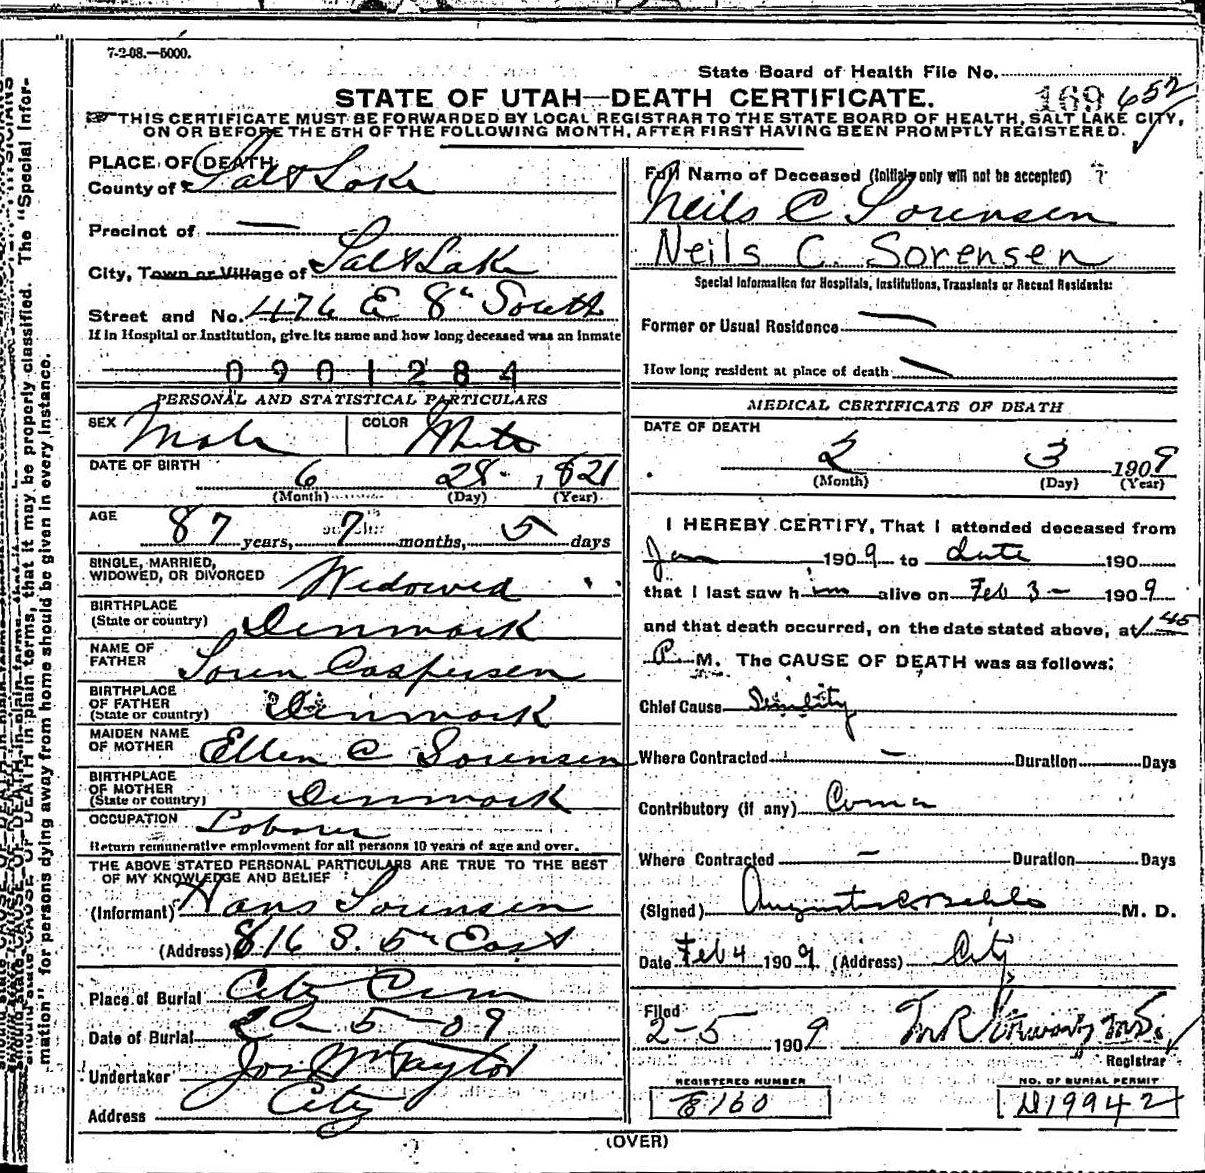 7-2-08.—5000.
State Board of Health File No.
169 652
STATE OF UTAH—DEATH CERTIFICATE.
THIS CERTIFICATE MUST BE FORWARDED BY LOCAL REGISTRAR TO THE STATE BOARD OF HEALTH, SALT LAKE CITY,
ON OR BEFORE THE 5TH OF THE FOLLOWING MONTH, AFTER FIRST HAVING BEEN PROMPTLY REGISTERED.
PLACE OF DEATH
County of Salt Lake
Precinct of —
City, Town or Village of Salt Lake
Street and No. 476 E 8" South
If in Hospital or Institution, give its name and how long deceased was an inmate
0901284
PERSONAL AND STATISTICAL PARTICULARS
SEX Male COLOR White
DATE OF BIRTH 6 28 1821
(Month) (Day) (Year)
AGE 87 years, 7 months, 5 days
SINGLE, MARRIED,
WIDOWED, OR DIVORCED Widowed
BIRTHPLACE
(State or country) Denmark
NAME OF
FATHER Soren Caspersen
BIRTHPLACE
OF FATHER
(State or country) Denmark
MAIDEN NAME
OF MOTHER Ellen C Sorensen
BIRTHPLACE
OF MOTHER
(State or country) Denmark
OCCUPATION Laborer
Return remunerative employment for all persons 10 years of age and over.
THE ABOVE STATED PERSONAL PARTICULARS ARE TRUE TO THE BEST
OF MY KNOWLEDGE AND BELIEF
(Informant) Hans Sorensen
(Address) 816 S. 5" East
Place of Burial City Cem
Date of Burial 2-5-09
Undertaker Jos Wm Taylor
Address City
Full Name of Deceased (Initials only will not be accepted)
Neils C Sorensen
Neils C. Sorensen
Special Information for Hospitals, Institutions, Transients or Recent Residents:
Former or Usual Residence —
How long resident at place of death —
MEDICAL CERTIFICATE OF DEATH
DATE OF DEATH
2 3 1909
(Month) (Day) (Year)
I HEREBY CERTIFY, That I attended deceased from
Jan 1909 to date 190
that I last saw him alive on Feb 3 — 1909
and that death occurred, on the date stated above, at 1 45
P. M. The CAUSE OF DEATH was as follows:
Chief Cause Senility
Where Contracted — Duration Days
Contributory (if any) Coma
Where Contracted — Duration Days
(Signed) M. D.
Date Feb 4 1909 (Address) City
Filed
2-5 1909
Registrar
REGISTERED NUMBER
NO. OF BURIAL PERMIT
160
19942
(OVER)
mation" for persons dying away from home should be given in every instance.